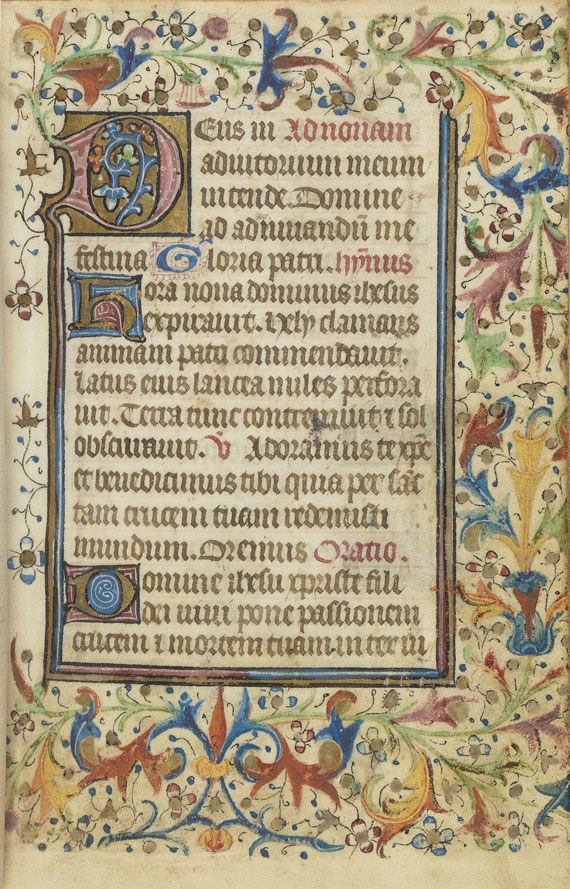 Deus in Ad nonam
adiutorium meum
intende Domine
ad adiuuandū me
festina Gloria patri. hymnus
Hora nona dominus ihesus
expirauit. hely clamans
animam patri commendauit.
latus eius lancea miles perfora
uit. Terra tunc contremuit ⁊ sol
obscurauit. V Adoramus te xp̄e
et benedicimus tibi quia per sāc
tam crucem tuam redemisti
mundum. Oremus Oratio.
Domine ihesu xpriste fili
dei uiui pone passionem
crucem ⁊ mortem tuam inter iu